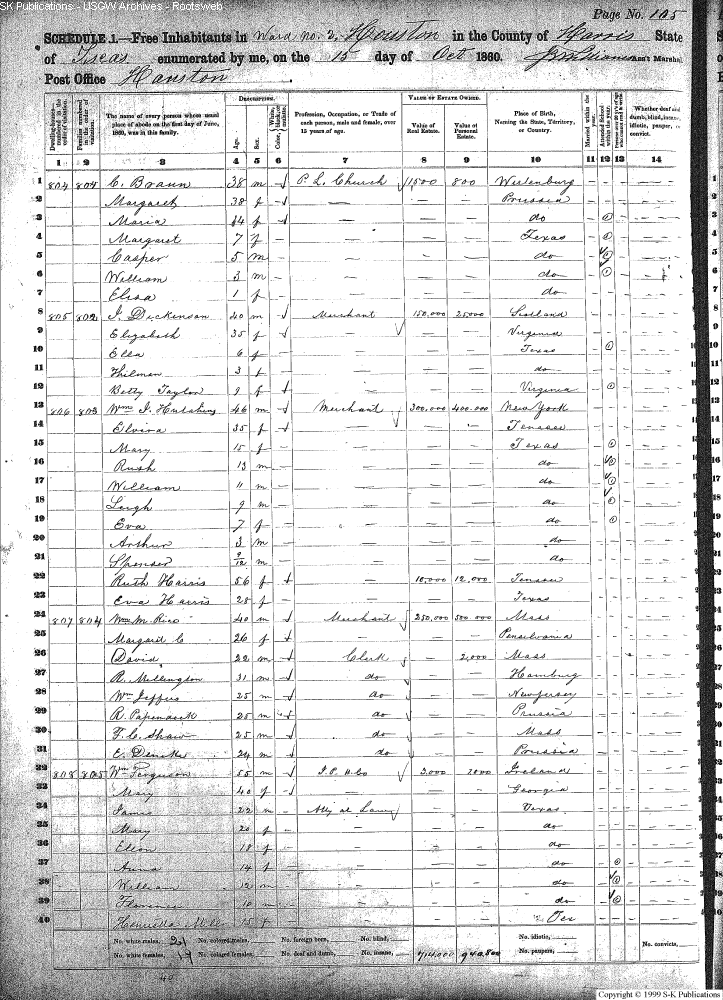 SK Publications - USGW Archives - Rootsweb
Page No. 105
SCHEDULE 1.—Free Inhabitants in Ward No. 3, Houston in the County of Harris State
of Texas enumerated by me, on the 15 day of Oct 1860. Ass't Marshal
Post Office Houston
DESCRIPTION. VALUE OF ESTATE OWNED.
Dwelling-houses—numbered in the order of visitation. Families numbered in the order of visitation. The name of every person whose usual place of abode on the first day of June, 1860, was in this family. Age. Sex. Color, White, black, or mulatto. Profession, Occupation, or Trade of each person, male and female, over 15 years of age. Value of Real Estate. Value of Personal Estate. Place of Birth, Naming the State, Territory, or Country. Married within the year. Attended School within the year. Whether deaf and dumb, blind, insane, idiotic, pauper, or convict.
1 2 3 4 5 6 7 8 9 10 11 12 13 14
1 804 804 C. Braun 38 m P. L. Church 1500 800
2 Margaret 38 f — — — Prussia
3 Maria 14 f — — — do
4 Margaret 7 f — — — Texas
5 Casper 5 m — — — do
6 William 3 m — — — do
7 Elisa 1 f — — — do
8 805 802 J. Dickinson 40 m Merchant 150,000 25000 Scotland
9 Elizabeth 35 f — — — Virginia
10 Ella 6 f — — — Texas
11 3 f — — — do
12 Betty Taylor 9 f — — — Virginia
13 806 803 Wm J. Hutchins 46 m Merchant 300,000 400,000 New York
14 Elvira 35 f — — — Tenessee
15 Mary 15 f — — — Texas
16 Rush 13 m — — — do
17 William 11 m — — — do
18 Leigh 9 m — — — do
19 Eva 7 f — — — do
20 Arthur 3 m — — — do
21 Spencer 9/12 m — — — do
22 Ruth Harris 56 f — 10,000 12,000 Tenessee
23 Eva Harris 28 f — — — Texas
24 807 804 Wm M. Rice 40 m Merchant 250,000 500,000 Mass
25 Margaret C 26 f — — — Pensilvania
26 David 22 m Clerk — 2,000 Mass
27 R. Millingdon 31 m do — — Hamburg
28 Wm Jeffers 25 m do — — New Jersey
29 R. Papendieck 25 m do — — Prussia
30 F. C. Shaw 25 m do — — Mass
31 E. 24 m do — — Prussia
32 808 805 Wm Ferguson 55 m 3,000 Ireland
33 Mary 40 f — — — Georgia
34 James 22 m Atty at Law — — Texas
35 Mary 20 f — — — do
36 18 f — — — do
37 Anna 14 f — — — do
38 William 12 m — — — do
39 Florence 10 — — — do
40 Henrietta 15 f — — — Tex
No. white males, 21 No. colored males, No. foreign born, No. blind, No. idiotic, No. convicts,
No. white females, 19 No. colored females, No. deaf and dumb, No. insane, 714,000 940,800 No. paupers,
40
Copyright © 1999 S-K Publications